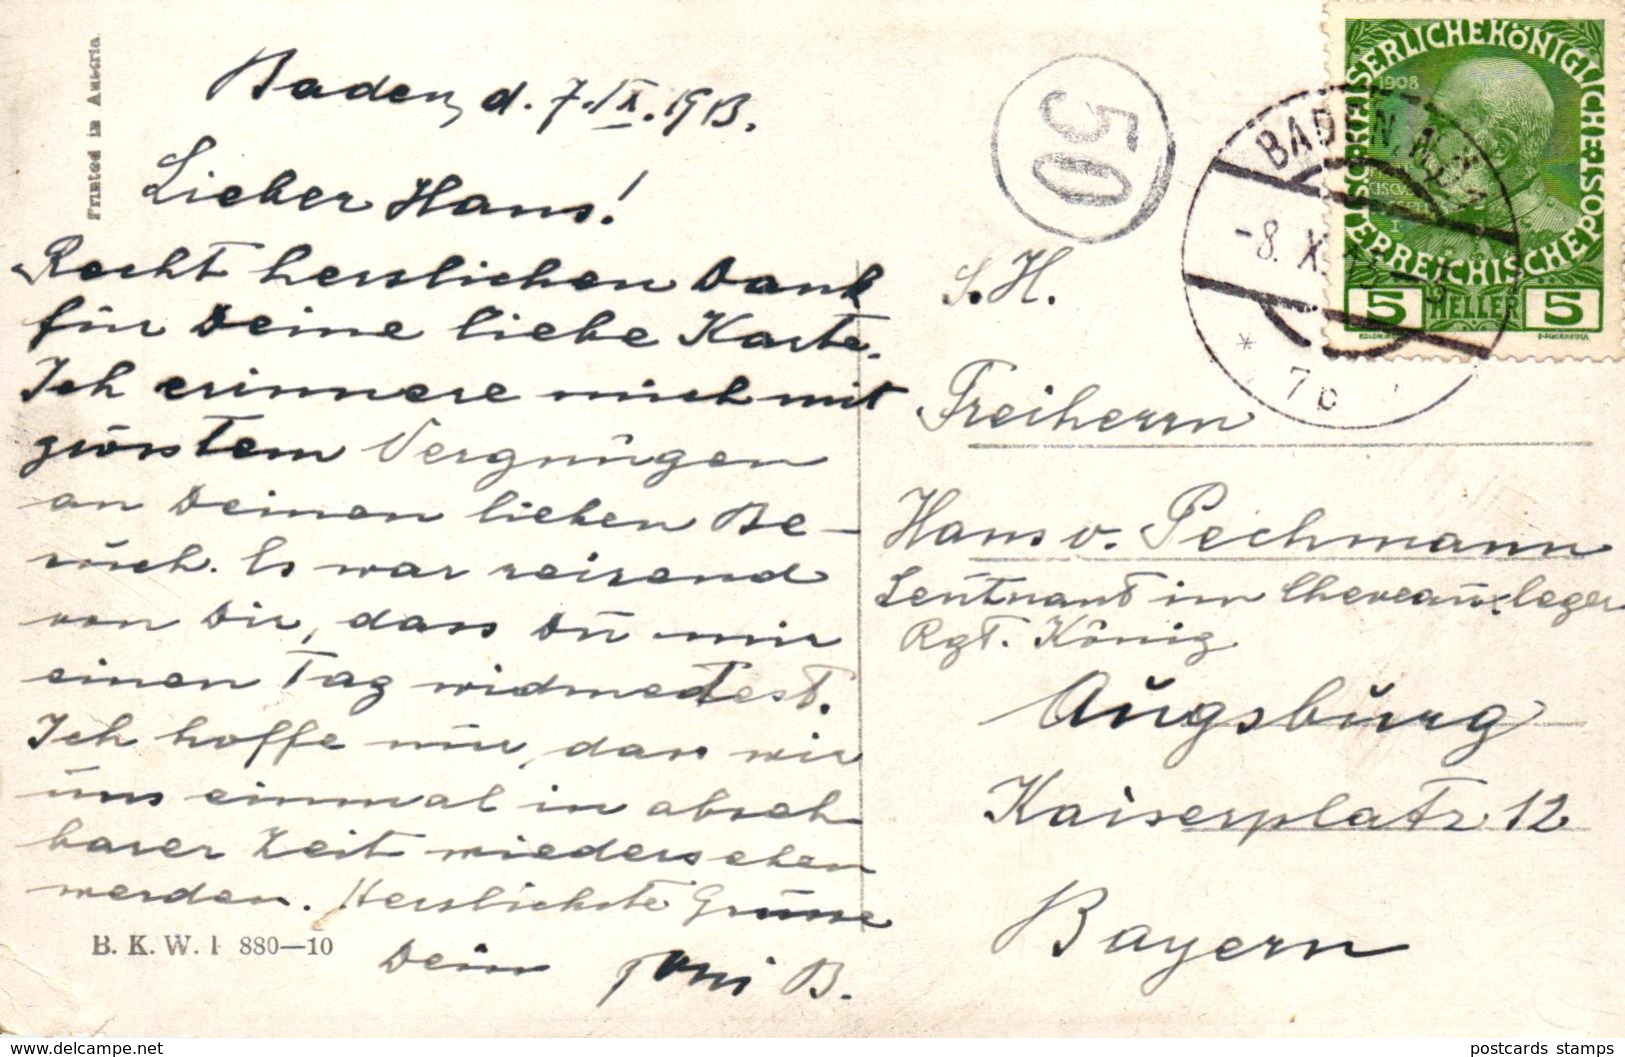 Printed in Austria
Baden, d. 7. IX. 1913.
Lieber Hans!
Recht herzlichen Dank
für Deine liebe Karte.
Ich erinnere mich mit
grösstem Vergnügen
an Deinen lieben Be-
such. Es war reizend
von Dir, dass Du mir
einen Tag widmetest.
Ich hoffe nur, dass wir
uns einmal in abseh-
barer Zeit wiedersehen
werden. Herzlichste Grüsse
Dein Toni B.
B. K. W. I 880—10
50
S. H.
Freiherrn
Hans v. Pechmann
Leutnant im Chevauxleger
Rgt. König
Augsburg
Kaiserplatz 12
Bayern
KAISERLICHE KÖNIGLICHE
ÖSTERREICHISCHE POST
1908
5 HELLER 5
BADEN, N.Ö. 1
-8. X. 13-5
* 7b
www.delcampe.net
postcards stamps